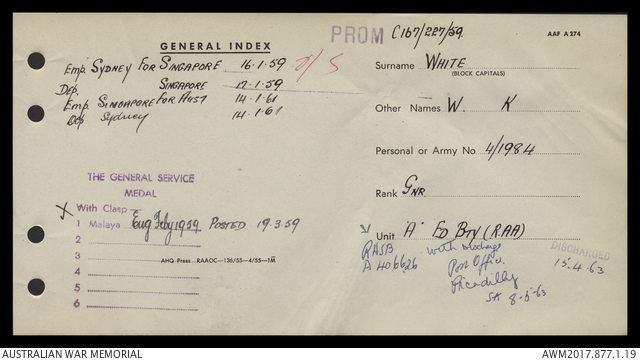 PROM C167/227/59
AAF A 274
GENERAL INDEX
Emp SYDNEY FOR SINGAPORE 16.1.59
Dep. SINGAPORE 17.1.59
Emp SINGAPORE FOR AUST 14.1.61
Dep Sydney 14.1.61
Surname WHITE
(BLOCK CAPITALS)
Other Names W. K
Personal or Army No 4/1984
Rank GNR
Unit "A" FD BTY (RAA)
THE GENERAL SERVICE
MEDAL
X With Clasp
1 Malaya Elig Feby 1959 POSTED 19.3.59
2
3
4
5
6
AHQ Press.—RAAOC—136/55—4/55—1M
RASB
A 406626
with discharge
Post Office
Picadilly
SA 8-5-63
DISCHARGED
15.4.63
AUSTRALIAN WAR MEMORIAL
AWM2017.877.1.19